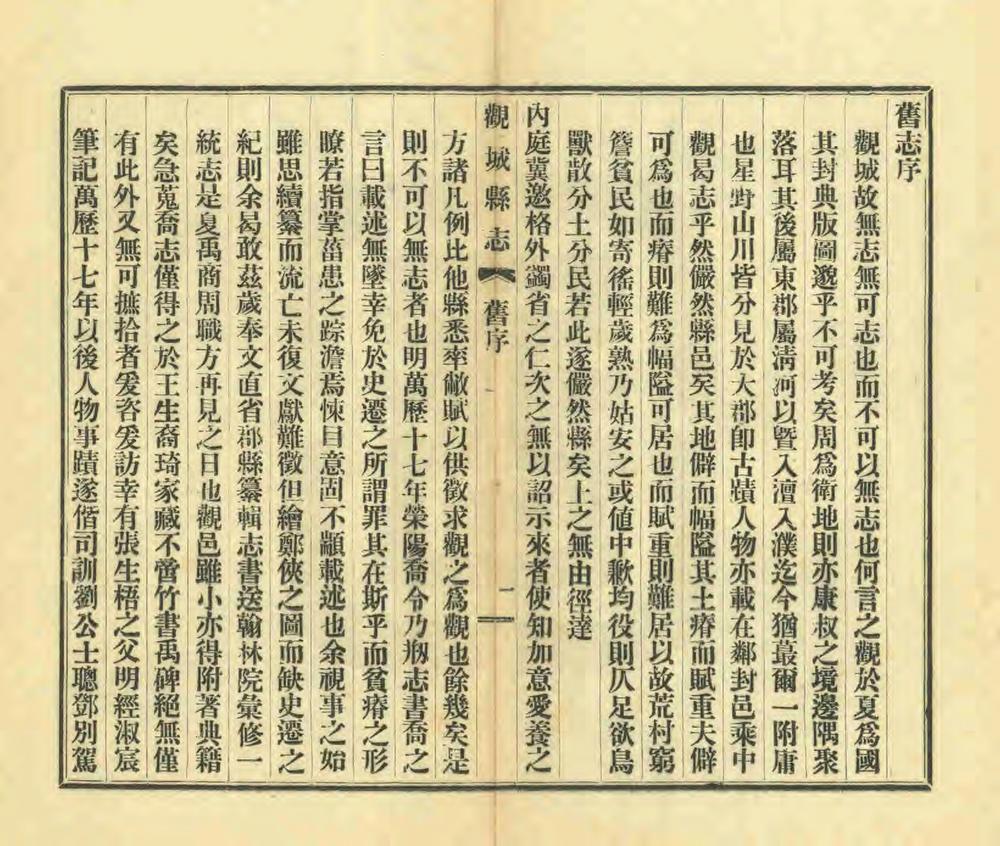 舊志序
觀城故無志無可志也而不可以無志也何言之觀於夏爲國
其封典版圖邈乎不可考矣周爲衛地則亦康叔之境邊隅聚
落耳其後屬東郡屬清河以曁入澶入濮迄今猶蕞爾一附庸
也星野山川皆分見於大郡卽古蹟人物亦載在鄰封邑乘中
觀曷志乎然儼然縣邑矣其地僻而幅隘其土瘠而賦重夫僻
可爲也而瘠則難爲幅隘可居也而賦重則難居以故荒村窮
簷貧民如寄徭輕歲熟乃姑安之或値中歉均役則仄足欲鳥
獸散分土分民若此遂儼然縣矣上之無由徑達
內庭冀邀格外蠲省之仁次之無以詔示來者使知加意愛養之
觀城縣志 舊序 一
方諸凡例比他縣悉率敝賦以供徵求觀之爲觀也餘幾矣是
則不可以無志者也明萬歷十七年榮陽喬令乃刱志書喬之
言曰載述無墜幸免於史遷之所謂罪其在斯乎而貧瘠之形
瞭若指掌菑患之踪澹焉悚目意固不顓載述也余視事之始
雖思續纂而流亡未復文獻難徵但繪鄭俠之圖而缺史遷之
紀則余曷敢茲歲奉文直省郡縣纂輯志書送翰林院彙修一
統志是夏禹商周職方再見之日也觀邑雖小亦得附著典籍
矣急蒐喬志僅得之於王生裔琦家藏不啻竹書禹碑絕無僅
有此外又無可摭拾者爰咨爰訪幸有張生梧之父明經淑宸
筆記萬歷十七年以後人物事蹟遂偕司訓劉公士聰鄧別駕